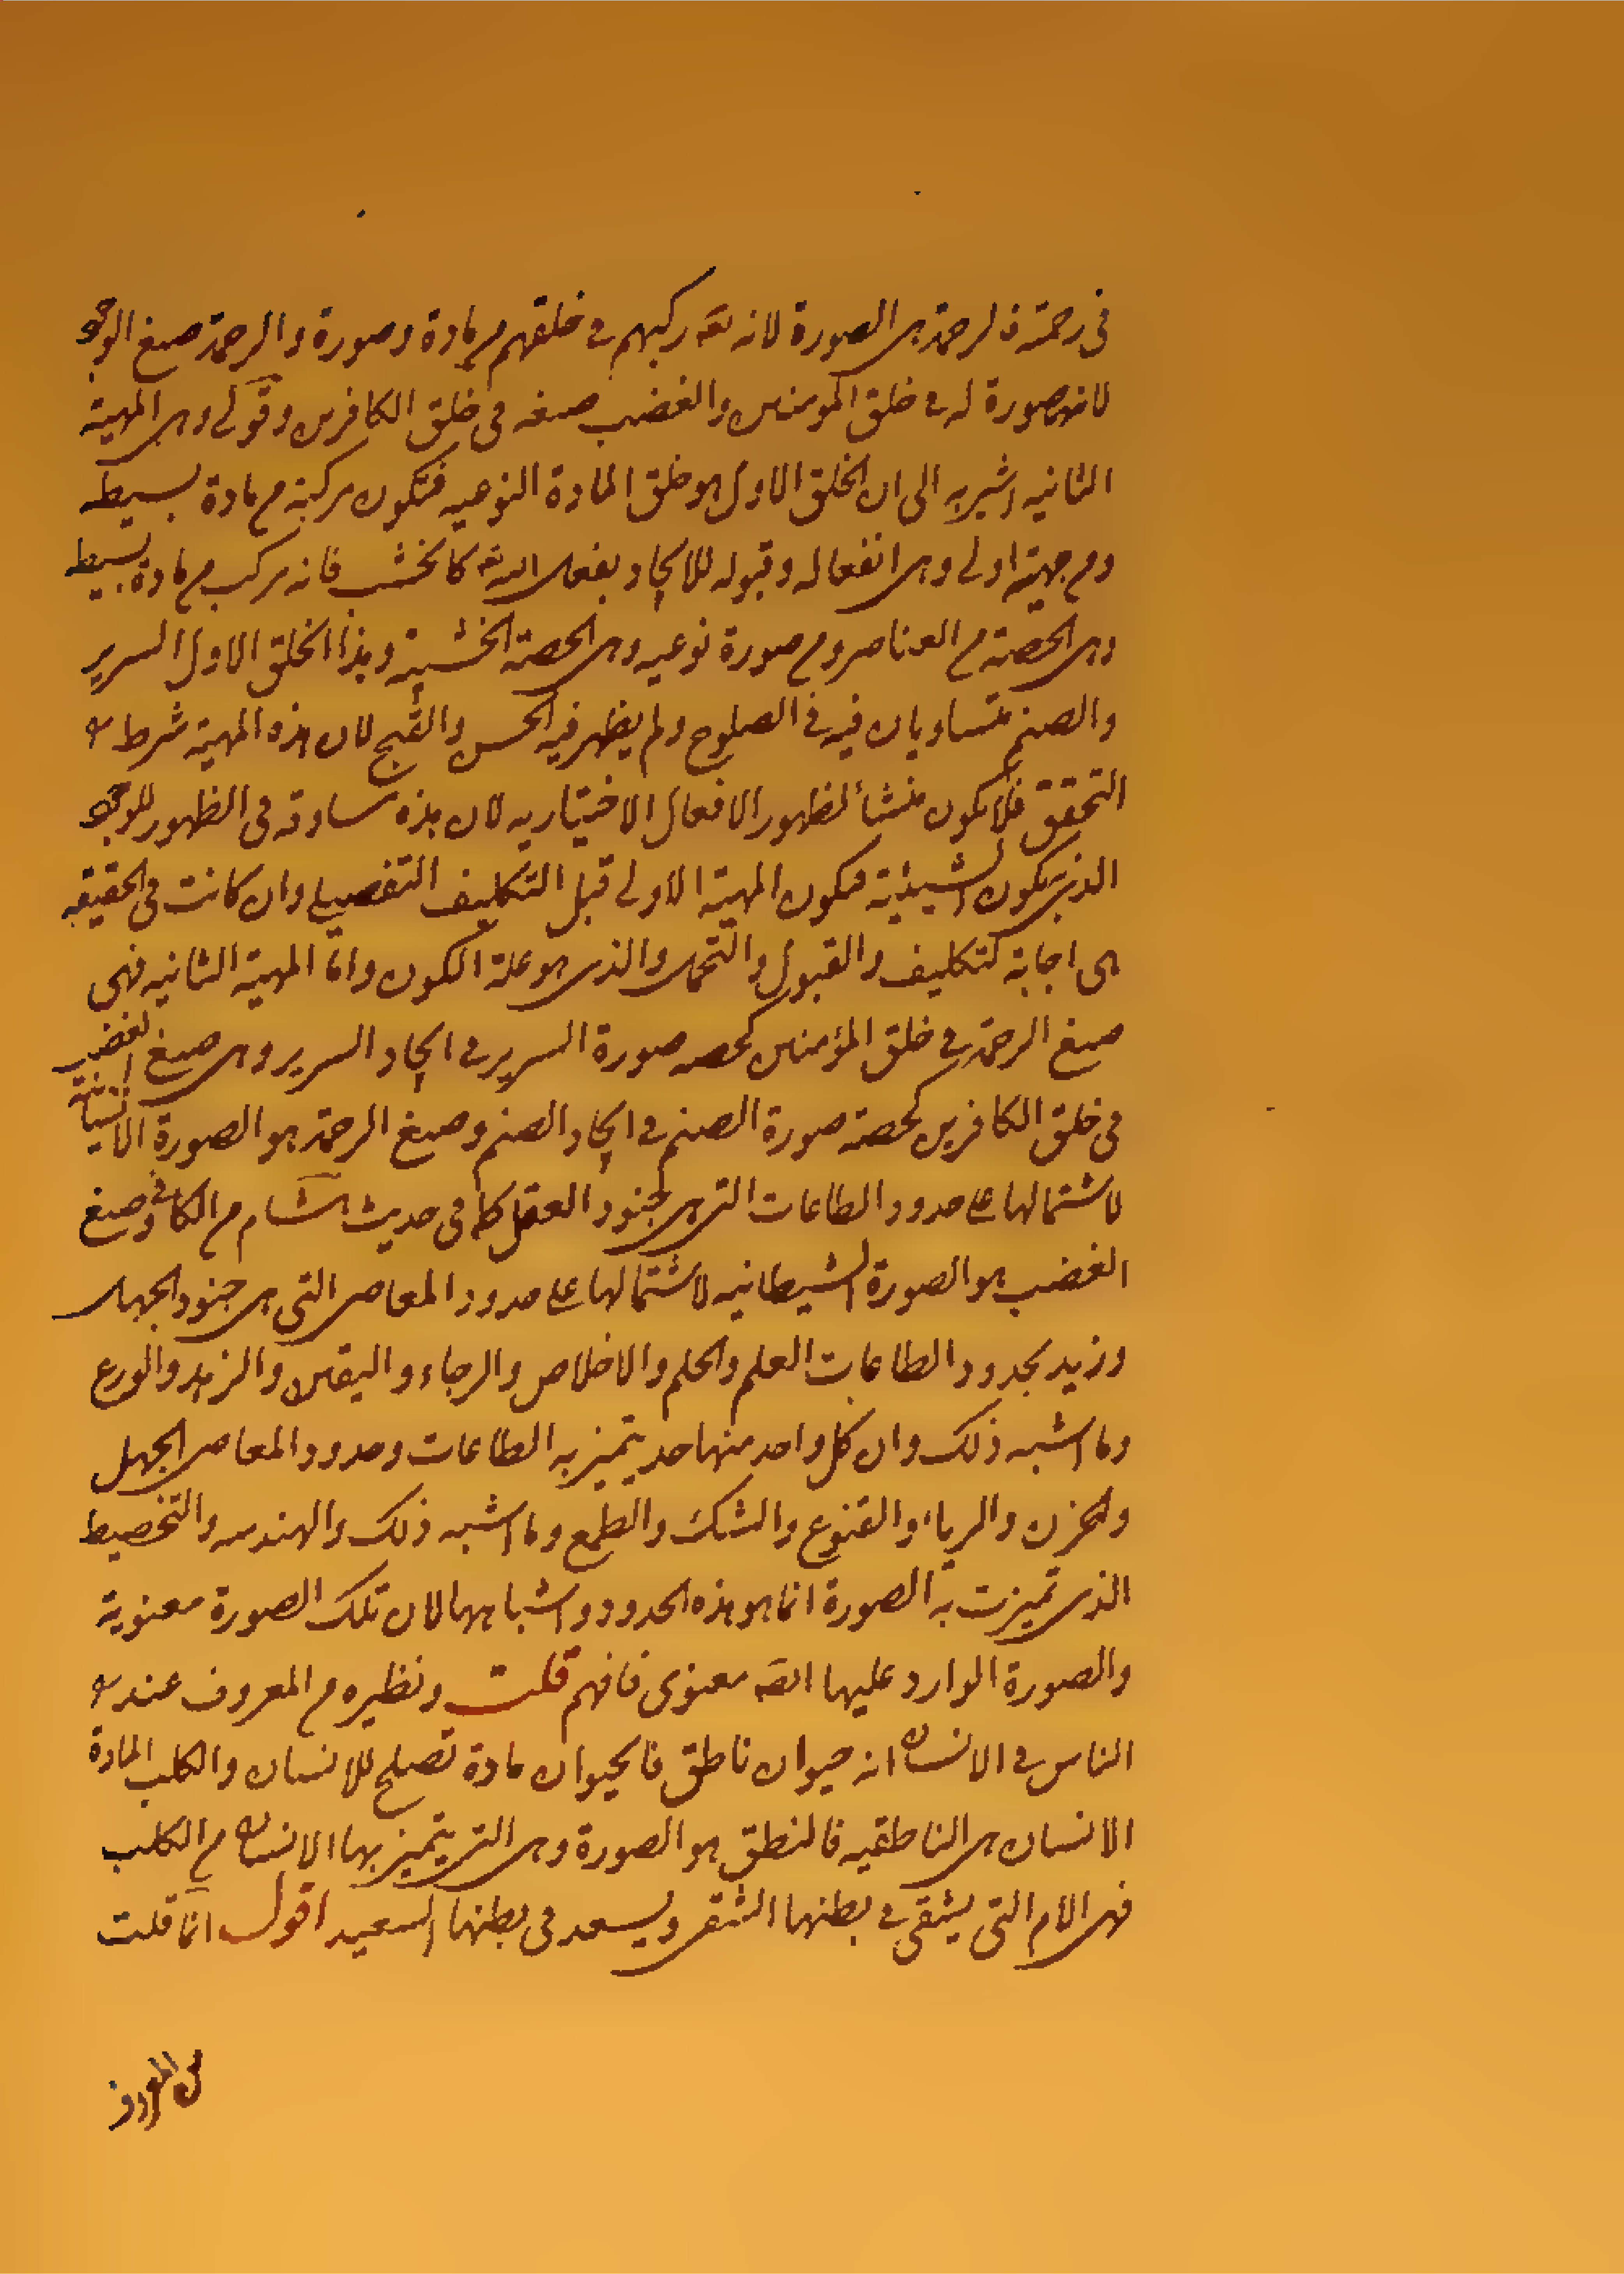 في رحمته فالرحمة هى الصورة لانه تعه ركبهم فى خلقهم من مادة وصورة والرحمة صبغ الوجو
لانها صورة له فى خلق المومنين والغضب صبغه فى خلق الكافرين وقولى وهى المهية
الثانيه اشير به الى ان الخلق الاول هو خلق المادة النوعيه فتكون مركبة من مادة بسيطه
ومن جهته اولى وهى انفعاله وقبوله للايجاد بفعل الله كالخشب فانه مركب من مادة بسيطه
وهى الحصة من العناصر ومن صورة نوعيه وهى الحصة الخشبية وبهذا الخلق الاول السرير
والصنم متساويان فيه فى الصلوح ولم يظهر فيه الحسن والقبح لان هذه المهية شرط
التحقق فلا يكون منشأ لظهور الافعال الاختياريه لان هذه مساوقة فى الظهور للوجو
الذى يكون الشيئية فتكون المهية الاولى قبل التكليف التفصيلى وان كانت فى الحقيقه
هى اجابة لتكليف والقبول والتحمل والذى هو علة الكون واما المهية الثانيه فهى
صبغ الرحمة فى خلق المؤمنين كحصه صورة السرير فى ايجاد السرير وهى صبغ الغضب
فى خلق الكافرين كحصة صورة الصنم فى ايجاد الصنم وصبغ الرحمة هو الصورة الانسانية
لاشتمالها على حدود الطاعات التى هى جنود العقل كما فى حديث هشام من الكافى وصبغ
الغضب هو الصورة الشيطانيه لاشتمالها على حدود المعاصى التى هى جنود الجهل
ونريد بحدود الطاعات العلم والحلم والاخلاص والرجاء واليقين والزهد والورع
وما اشبه ذلك وان كل واحد منها حد يتميز به الطاعات وحدود المعاصى الجهل
والحزن والرياء والقنوع والشك والطمع وما اشبه ذلك والهندسه والتخطيط
الذى تميزت به الصورة انما هو هذه الحدود واشباهها لان تلك الصورة معنوية
والصورة الوارد عليها الله معنوى فافهم قلت ونظيره من المعروف عند
الناس فى الانسان انه حيوان ناطق فالحيوان مادة تصلح للانسان والكلب المادة
الانسان هى الناطقيه فالنطق هو الصورة وهى التى يتميز بها الانسان من الكلب
فهى الام التى يشقى فى بطنها الشقى ويسعد فى بطنها السعيد اقول انما قلت
من المعروف